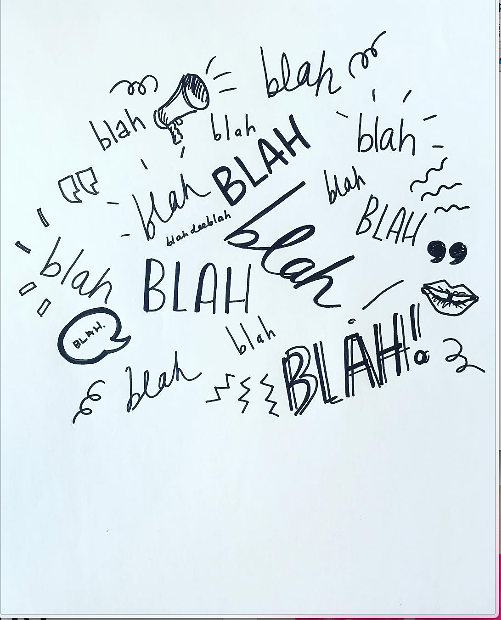 blah
blah
blah
blah
BLAH
blah
blah
blah
blahdeeblah
BLAH
blah
blah
BLAH
BLAH.
blah
blah
BLAH!